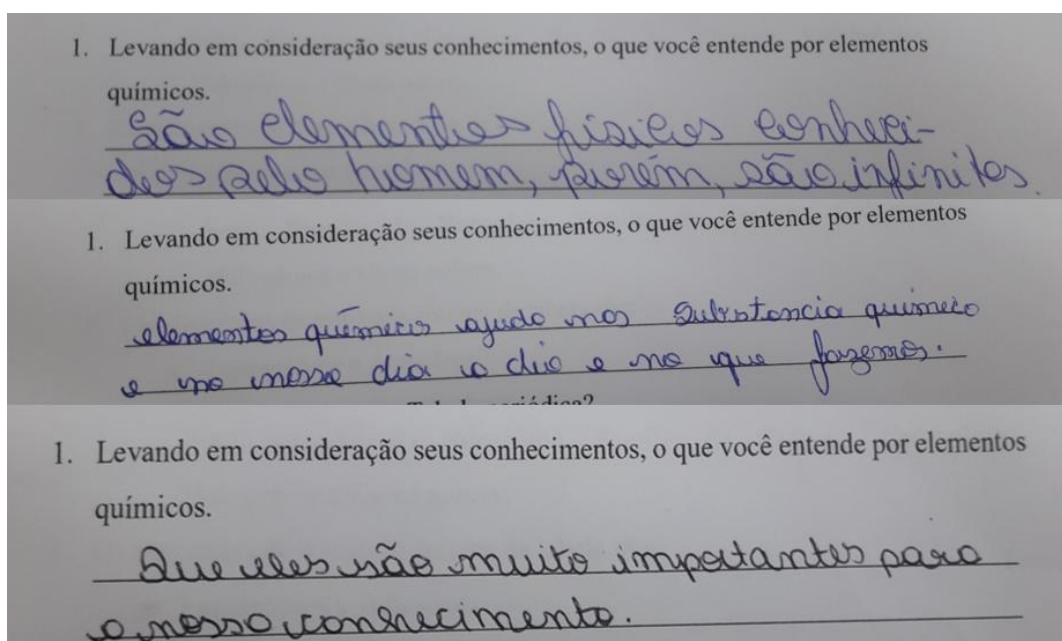 1. Levando em consideração seus conhecimentos, o que você entende por elementos
químicos.
São elementos físicos conheci-
dos pelo homem, porém, são infinitos.
1. Levando em consideração seus conhecimentos, o que você entende por elementos
químicos.
elementos químicos ajudo nas substancia quimico
e no nosso dia a dia e no que fazemos.
1. Levando em consideração seus conhecimentos, o que você entende por elementos
químicos.
Que eles são muito importantes para
o nosso conhecimento.